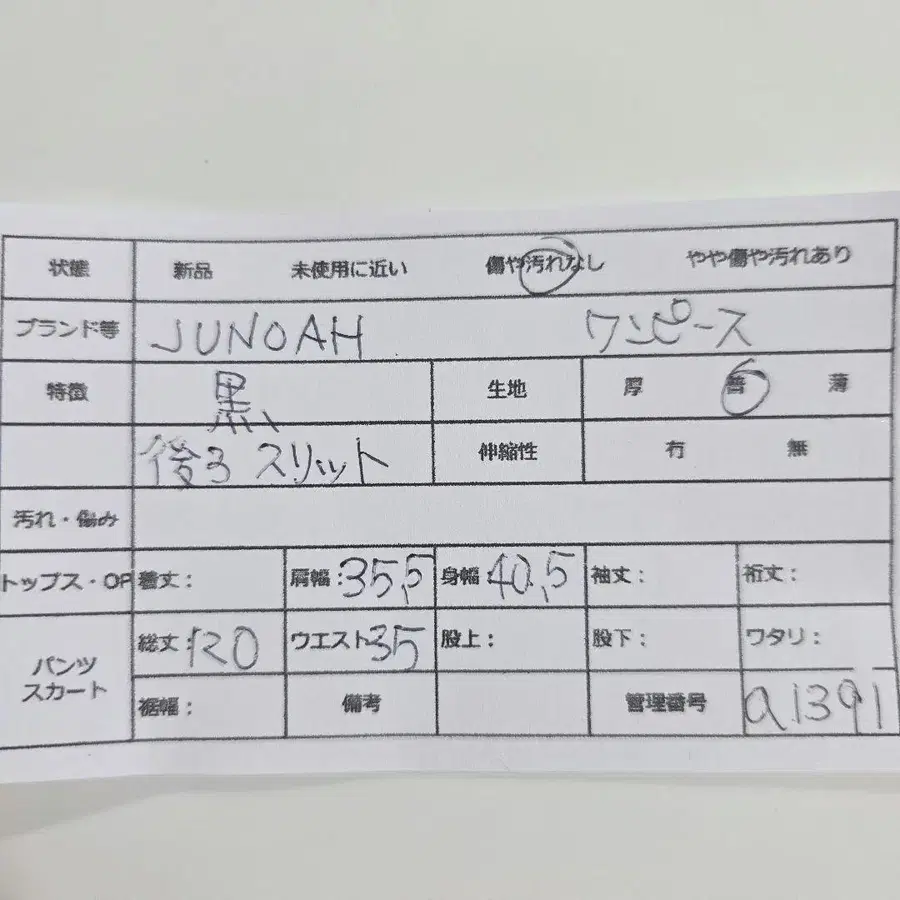 状態 新品 未使用に近い 傷や汚れなし やや傷や汚れあり
ブランド等 JUNOAH ワンピース
特徴 黒 生地 厚 普 薄
後ろスリット 伸縮性 有 無
汚れ・傷み
トップス・OP 着丈: 肩幅:35,5 身幅:40,5 袖丈: 裄丈:
パンツ スカート 総丈:120 ウエスト35 股上: 股下: ワタリ:
裾幅: 備考 管理番号 a1391